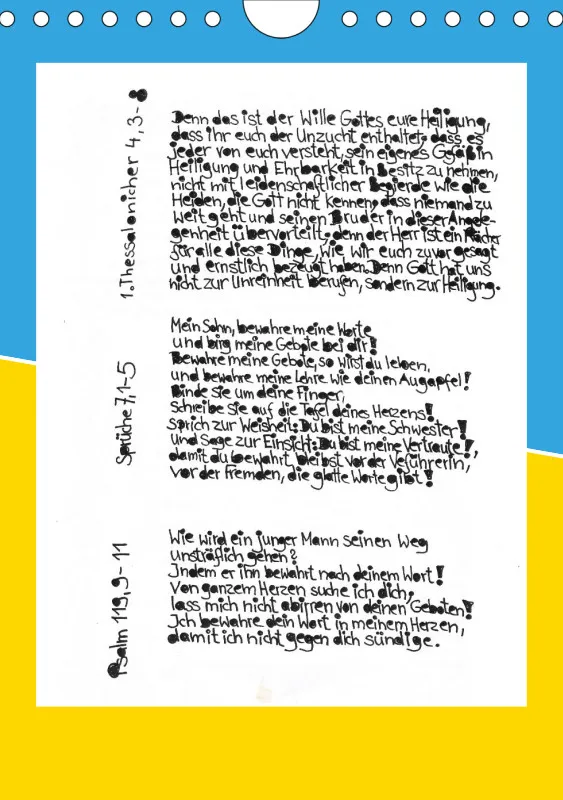 1. Thessalonicher 4, 3-8
Denn das ist der Wille Gottes eure Heiligung,
dass ihr euch der Unzucht enthaltet, dass es
jeder von euch versteht, sein eigenes Gefäß in
Heiligung und Ehrbarkeit in Besitz zu nehmen,
nicht mit leidenschaftlicher Begierde wie die
Heiden, die Gott nicht kennen, dass niemand zu
weit geht und seinen Bruder in dieser Angele-
genheit übervorteilt, denn der Herr ist ein Rächer
für alle diese Dinge, wie wir euch zuvor gesagt
und ernstlich bezeugt haben. Denn Gott hat uns
nicht zur Unreinheit berufen, sondern zur Heiligung.
Sprüche 7, 1-5
Mein Sohn, bewahre meine Worte
und birg meine Gebote bei dir!
Bewahre meine Gebote, so wirst du leben,
und bewahre meine Lehre wie deinen Augapfel!
Binde sie um deine Finger,
schreibe sie auf die Tafel deines Herzens!
Sprich zur Weisheit: Du bist meine Schwester!
und sage zur Einsicht: Du bist meine Vertraute!,
damit du bewahrt bleibst vor der Veführerin,
vor der Fremden, die glatte Worte gibt!
Psalm 119, 9-11
Wie wird ein junger Mann seinen Weg
unsträflich gehen?
Indem er ihn bewahrt nach deinem Wort!
Von ganzem Herzen suche ich dich,
lass mich nicht abirren von deinen Geboten!
Ich bewahre dein Wort in meinem Herzen,
damit ich nicht gegen dich sündige.